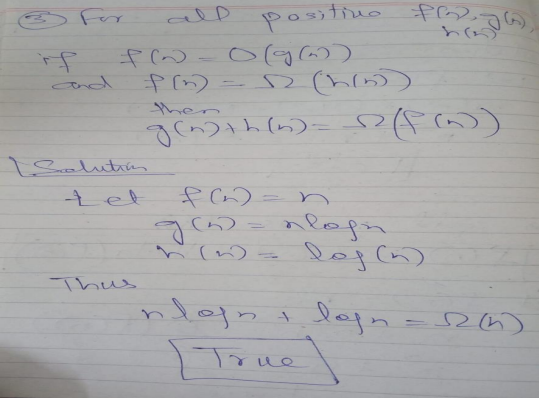 ③ For all positive f(n), g(n),
h(n)
if f(n) = O(g(n))
and f(n) = Ω(h(n))
then
g(n)+h(n) = Ω(f(n))
Solution
Let f(n) = n
g(n) = nlogn
h(n) = log(n)
Thus
nlogn + logn = Ω(n)
True